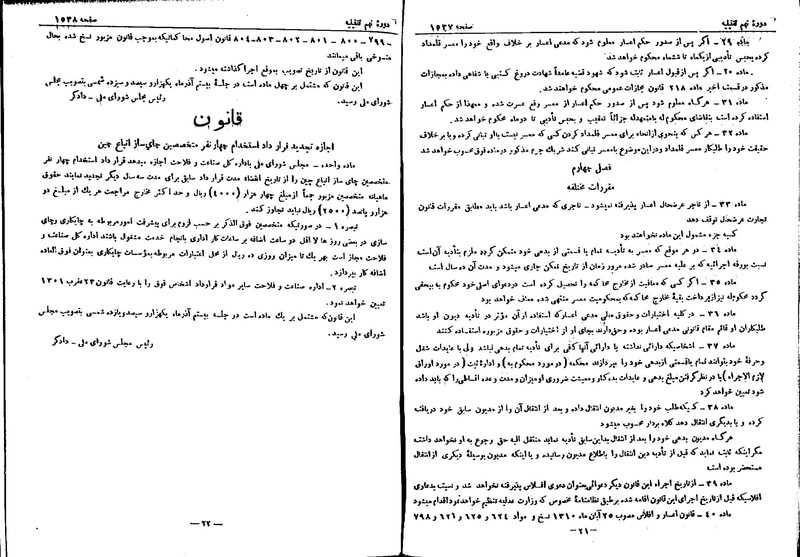 دورهٔ نهم تقنینیه
صفحه ۱۵۳۷
ماده ۲۹ - اگر پس از صدور حکم اعسار معلوم شود که مدعی اعسار بر خلاف واقع خود را معسر قلمداد
کرده بحبس تأدیبی از یکماه تا ششماه محکوم خواهد شد.
ماده ۳۰ - اگر پس از قبول اعسار ثابت شود که شهود قضیه عامداً شهادت دروغ کتبی یا شفاهی داده بمجازات
مذکور در قسمت اخیر ماده ۲۱۸ قانون مجازات عمومی محکوم خواهند شد.
ماده ۳۱ - هرگاه معلوم شود پس از صدور حکم اعسار از معسر رفع عسرت شده و معهذا از حکم اعسار
استفاده کرده است بتقاضای محکوم له یا متعهدله جزائاً تعقیب و بحبس تأدیبی تا دو ماه محکوم خواهد شد.
ماده ۳۲ - هر کس که بنحوی از انحاء برای معسر قلمداد کردن کسی که معسر نیست با او تبانی کرده و یا بر خلاف
حقیقت خود را طلبکار معسر قلمداد و در این موضوع با معسر تبانی کند شریك جرم مذکور در ماده فوق محسوب خواهد شد
فصل چهارم
مقررات مختلفه
ماده ۳۳ - از تاجر عرضحال اعسار پذیرفته نمیشود - تاجری که مدعی اعسار باشد باید مطابق مقررات قانون
تجارت عرضحال توقف دهد
کسبه جزء مشمول این ماده نخواهند بود
ماده ۳۴ - در هر موقع که معسر به تأدیه تمام یا قسمتی از بدهی خود متمکن گردد ملزم بتأدیه آن است
نسبت بورقه اجرائیه که بر علیه معسر صادر شده مرور زمان از تاریخ تمکن جاری میشود و مدت آن ده سال است
ماده ۳۵ - اگر کسی که معافیت از مخارج محاکمه را تحصیل کرده است در دعوای اصلی خود محکوم به بیحقی
گردد حکوم له نیز از پرداخت بقیهٔ مخارج محاکمه که بمحکومیت معسر منتهی شده معاف خواهد بود
ماده ۳۶ - در کلیه اختیارات و حقوق مالی مدعی اعسار که استفاده از آن مؤثر در تأدیه دیون او باشد
طلبکاران او قائم مقام قانونی مدعی اعسار بوده و حق دارند بجای او از اختیارات و حقوق مزبوره استفاده کنند
ماده ۳۷ - اشخاصیکه دارائی نداشته یا دارائی آنها کافی برای تأدیه تمام بدهی نباشد ولی با عایدات شغل
وحرفهٔ خود بتوانند تمام یا قسمتی از بدهی خود را بپردازند محکمه (در مورد محکوم به) و ادارهٔ ثبت (در مورد اوراق
لازم الاجراء) با در نظر گرفتن مبلغ بدهی و عایدات بدهکار و معیشت ضروری او میزان و مدت و عده اقساطی را که باید داده
شود تعیین خواهد کرد
ماده ۳۸ - کسیکه طلب خود را بغیر مدیون انتقال داده و بعد از انتقال آن را از مدیون سابق خود دریافت
کرده و یا بدیگری انتقال دهد کلاه بردار محسوب میشود
هرگاه مدیون بدهی خود را بعد از انتقال بداین سابق تأدیه نماید منتقل الیه حق رجوع به او نخواهد داشت
مگر اینکه ثابت نماید که قبل از تأدیه دین انتقال را باطلاع مدیون رسانیده و یا اینکه مدیون بوسیلهٔ دیگری از انتقال
مستحضر بوده است
ماده ۳۹ - از تاریخ اجراء این قانون دیگر دعوائی بعنوان دعوی افلاس پذیرفته نخواهد شد و نسبت بدعاوی
افلاسیکه قبل از تاریخ اجرای این قانون اقامه شده بر طبق نظامنامهٔ مخصوص که وزارت عدلیه تنظیم خواهد نمود اقدام میشود
ماده ۴۰ - قانون اعسار و افلاس مصوب ۲۵ آبان ماه ۱۳۱۰ نسخ و مواد ۶۲۴ و ۶۲۵ و ۶۲۱ و ۷۹۸
- ۲۱ -
دورهٔ نهم تقنینیه
صفحه ۱۵۳۸
۷۹۹ - ۸۰۰ - ۸۰۱ - ۸۰۲ - ۸۰۳ - ۸۰۴ قانون اصول محاکماتیکه بموجب قانون مزبور نسخ شده بحال
منسوخی باقی میمانند
این قانون از تاریخ تصویب بموقع اجرا گذاشته میشود.
این قانون که مشتمل بر چهل ماده است در جلسهٔ بیستم آذرماه یکهزار و سیصد و سیزده شمسی بتصویب مجلس
شورای ملی رسید.
رئیس مجلس شورای ملی - دادگر
قانون
اجازه تجدید قرارداد استخدام چهار نفر متخصصین چای ساز اتباع چین
ماده واحده - مجلس شورای ملی باداره کل صناعت و فلاحت اجازه میدهد قرارداد استخدام چهار نفر
متخصصین چای ساز اتباع چین را از تاریخ انقضاء مدت قرارداد سابق برای مدت سه سال دیگر تجدید نمایند حقوق
ماهیانه متخصصین مزبور جمعاً از مبلغ چهار هزار (۴۰۰۰) ریال و حد اکثر مخارج مراجعت هر یك از مبلغ دو
هزار و پانصد (۲۵۰۰) ریال نباید تجاوز کند.
تبصره ۱ - در صورتیکه متخصصین فوق الذکر بر حسب لزوم برای پیشرفت امور مربوطه به چایکاری وچای
سازی در بعضی روزها لا اقل دو ساعت اضافه بر ساعات کار اداری بانجام خدمت مشغول باشند اداره کل صناعت و
فلاحت مجاز است بهر یك تا میزان روزی ده ریال از محل اعتبارات مربوطه بمؤسسات چایکاری بعنوان فوق العاده
اضافه کار بپردازد.
تبصره ۲ - اداره صناعت و فلاحت سایر مواد قرارداد اشخاص فوق را با رعایت قانون ۲۳ عقرب ۱۳۰۱
تعیین خواهد نمود.
این قانون که مشتمل بر یك ماده است در جلسه بیستم آذرماه یکهزار و سیصد و سیزده شمسی بتصویب مجلس
شورای ملی رسید.
رئیس مجلس شورای ملی - دادگر
- ۲۲ -